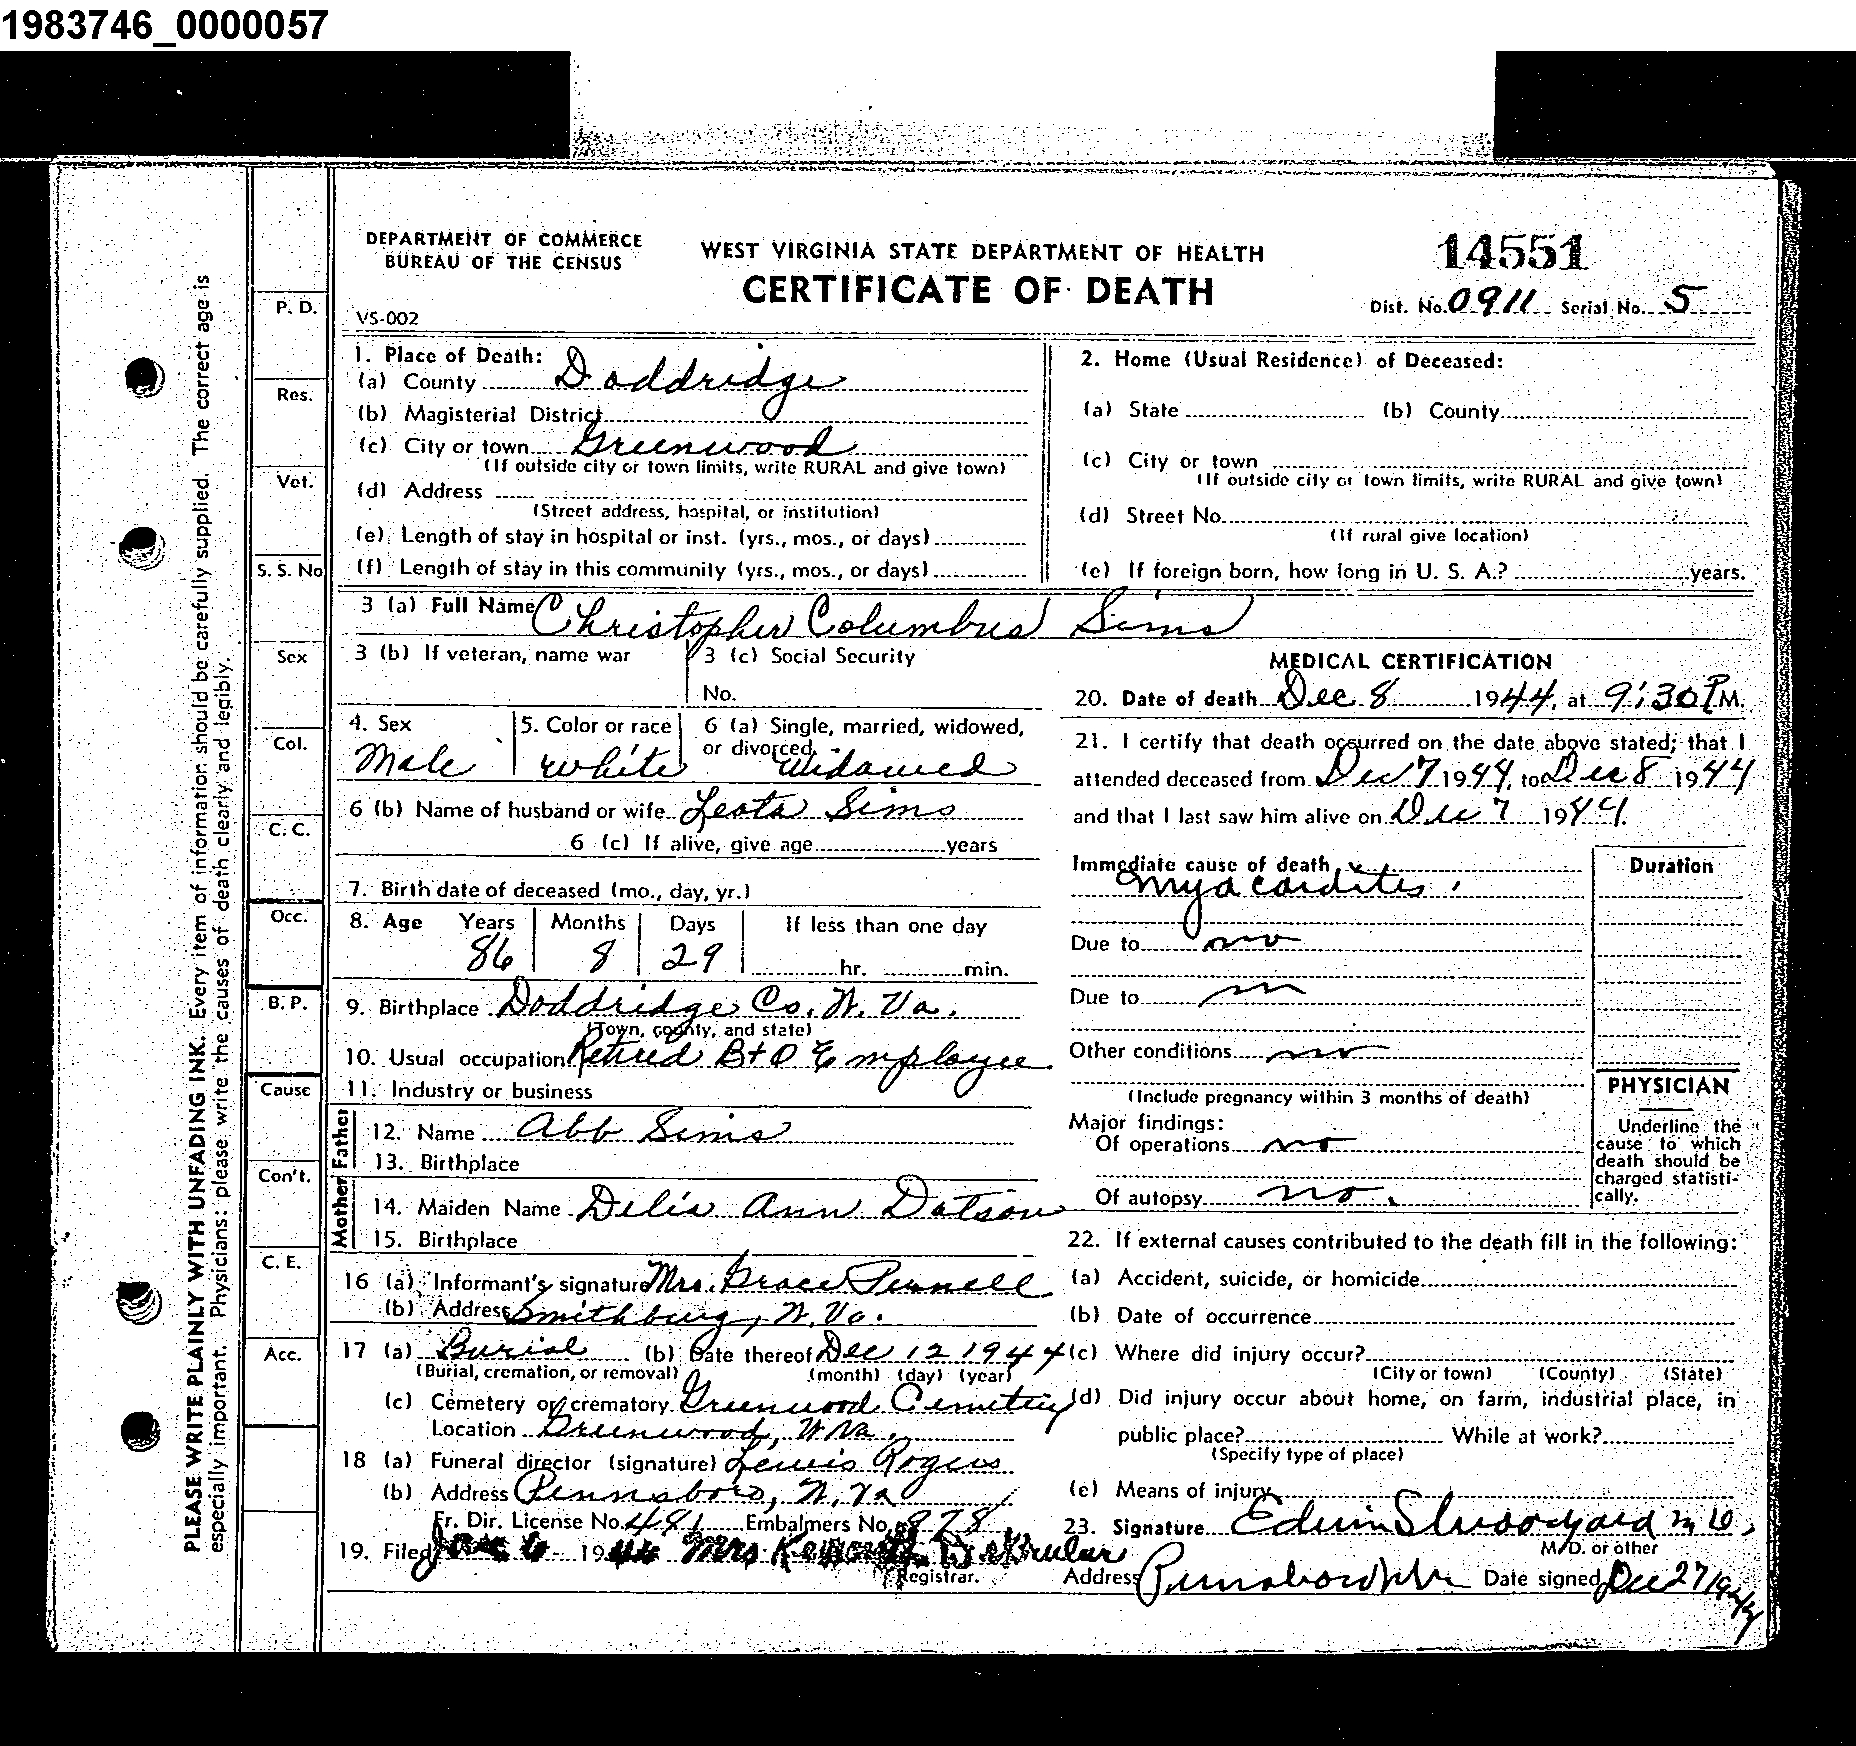 1983746_0000057
DEPARTMENT OF COMMERCE
BUREAU OF THE CENSUS
WEST VIRGINIA STATE DEPARTMENT OF HEALTH
CERTIFICATE OF DEATH
14551
Dist. No. 0911 Serial No. 5
VS-002
PLEASE WRITE PLAINLY WITH UNFADING INK. Every item of information should be carefully supplied. The correct age is
especially important. Physicians: please write the causes of death clearly and legibly.
P. D.
Res.
Vet.
S. S. No
Sex
Col.
C. C.
Occ.
B. P.
Cause
Con't.
C. E.
Acc.
1. Place of Death:
(a) County Doddridge
(b) Magisterial District
(c) City or town Greenwood
(If outside city or town limits, write RURAL and give town)
(d) Address
(Street address, hospital, or institution)
(e) Length of stay in hospital or inst. (yrs., mos., or days)
(f) Length of stay in this community (yrs., mos., or days)
2. Home (Usual Residence) of Deceased:
(a) State (b) County
(c) City or town
(If outside city or town limits, write RURAL and give town)
(d) Street No.
(If rural give location)
(e) If foreign born, how long in U. S. A.? years.
3 (a) Full Name Christopher Columbus Sims
3 (b) If veteran, name war
3 (c) Social Security
No.
4. Sex
Male
5. Color or race
white
6 (a) Single, married, widowed,
or divorced
widowed
6 (b) Name of husband or wife Leota Sims
6 (c) If alive, give age years
7. Birth date of deceased (mo., day, yr.)
8. Age Years Months Days If less than one day
86 8 29 hr. min.
9. Birthplace Doddridge Co. W. Va.
(Town, county, and state)
10. Usual occupation Retired B+O Employee
11. Industry or business
Father
12. Name Abb Sims
13. Birthplace
Mother
14. Maiden Name Delia Ann Dotson
15. Birthplace
16 (a) Informant's signature Mrs. Grace Pennell
(b) Address Smithburg, W. Va.
17 (a) Burial (b) Date thereof Dec 12 1944
(Burial, cremation, or removal) (month) (day) (year)
(c) Cemetery or crematory Greenwood Cemetery
Location Greenwood, W Va.
18 (a) Funeral director (signature) Lewis Rogers
(b) Address Pennsboro, W. Va
Fr. Dir. License No. 481 Embalmers No. 878
19. Filed 19 Mrs
Registrar.
MEDICAL CERTIFICATION
20. Date of death Dec 8 1944, at 9:30 P M.
21. I certify that death occurred on the date above stated; that I
attended deceased from Dec 7 1944, to Dec 8 1944
and that I last saw him alive on Dec 7 1944.
Immediate cause of death
Myocarditis.
Duration
Due to no
Due to
Other conditions no
(Include pregnancy within 3 months of death)
Major findings:
Of operations no
Of autopsy no.
PHYSICIAN
Underline the
cause to which
death should be
charged statisti-
cally.
22. If external causes contributed to the death fill in the following:
(a) Accident, suicide, or homicide
(b) Date of occurrence
(c) Where did injury occur?
(City or town) (County) (State)
(d) Did injury occur about home, on farm, industrial place, in
public place? While at work?
(Specify type of place)
(e) Means of injury
23. Signature Edwin S Woodyard M D,
M.D. or other
Address Pennsboro W Va Date signed Dec 27 1944